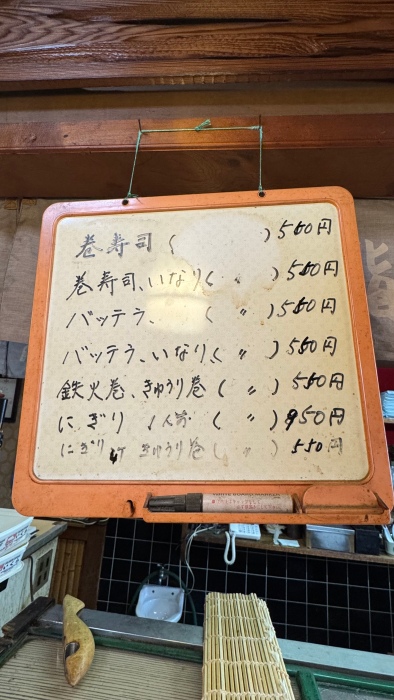 巻寿司 (       ) 550円
巻寿司、いなり( 〃 ) 550円
バッテラ、 ( 〃 ) 550円
バッテラ、いなり、( 〃 ) 550円
鉄火巻、きゅうり巻 ( 〃 ) 550円
にぎり 1人前 ( 〃 ) 950円
にぎり きゅうり巻 ( 〃 ) 550円